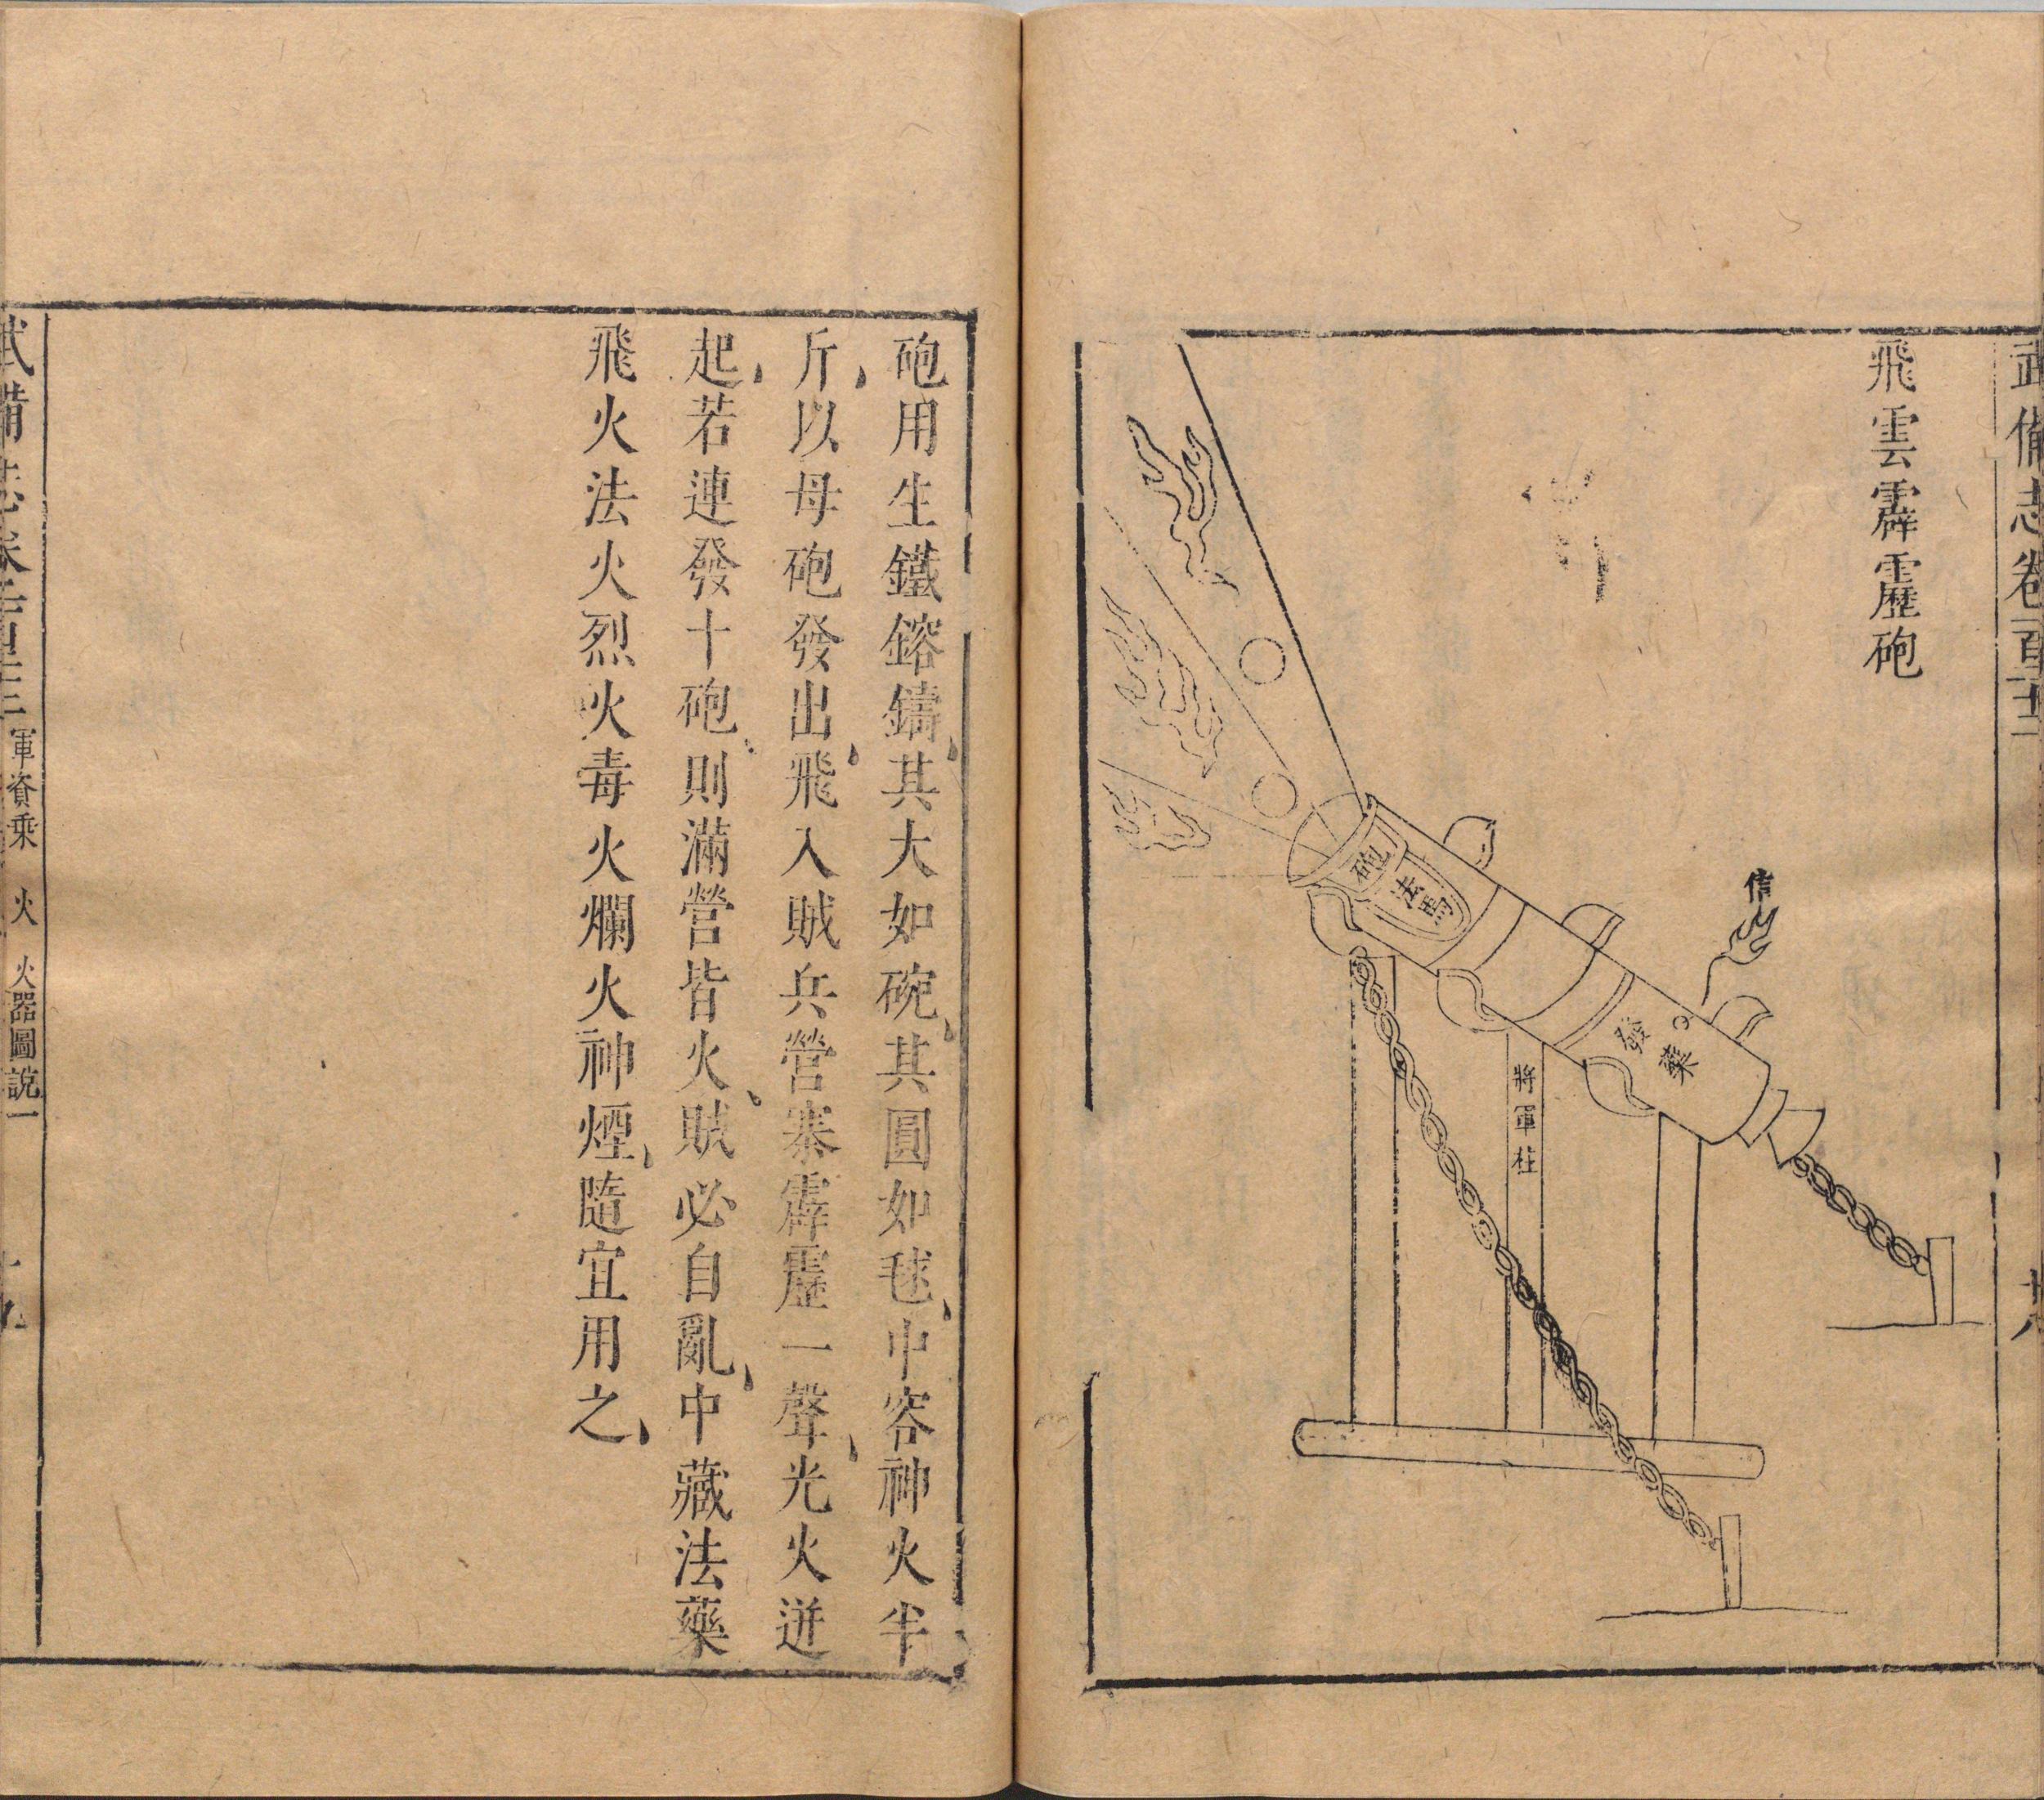 武備志卷百二十二
飛雲霹靂砲
信
發藥
法馬
砲
將軍柱
砲用生鐵鎔鑄、其大如碗、其圓如毬、中容神火半
斤、以母砲發出、飛入賊兵營寨霹靂一聲、光火迸
起、若連發十砲、則滿營皆火、賊必自亂、中藏法藥
飛火法火烈火毒火爛火神煙、隨宜用之、
武備志卷
軍資乘 火 火器圖說一